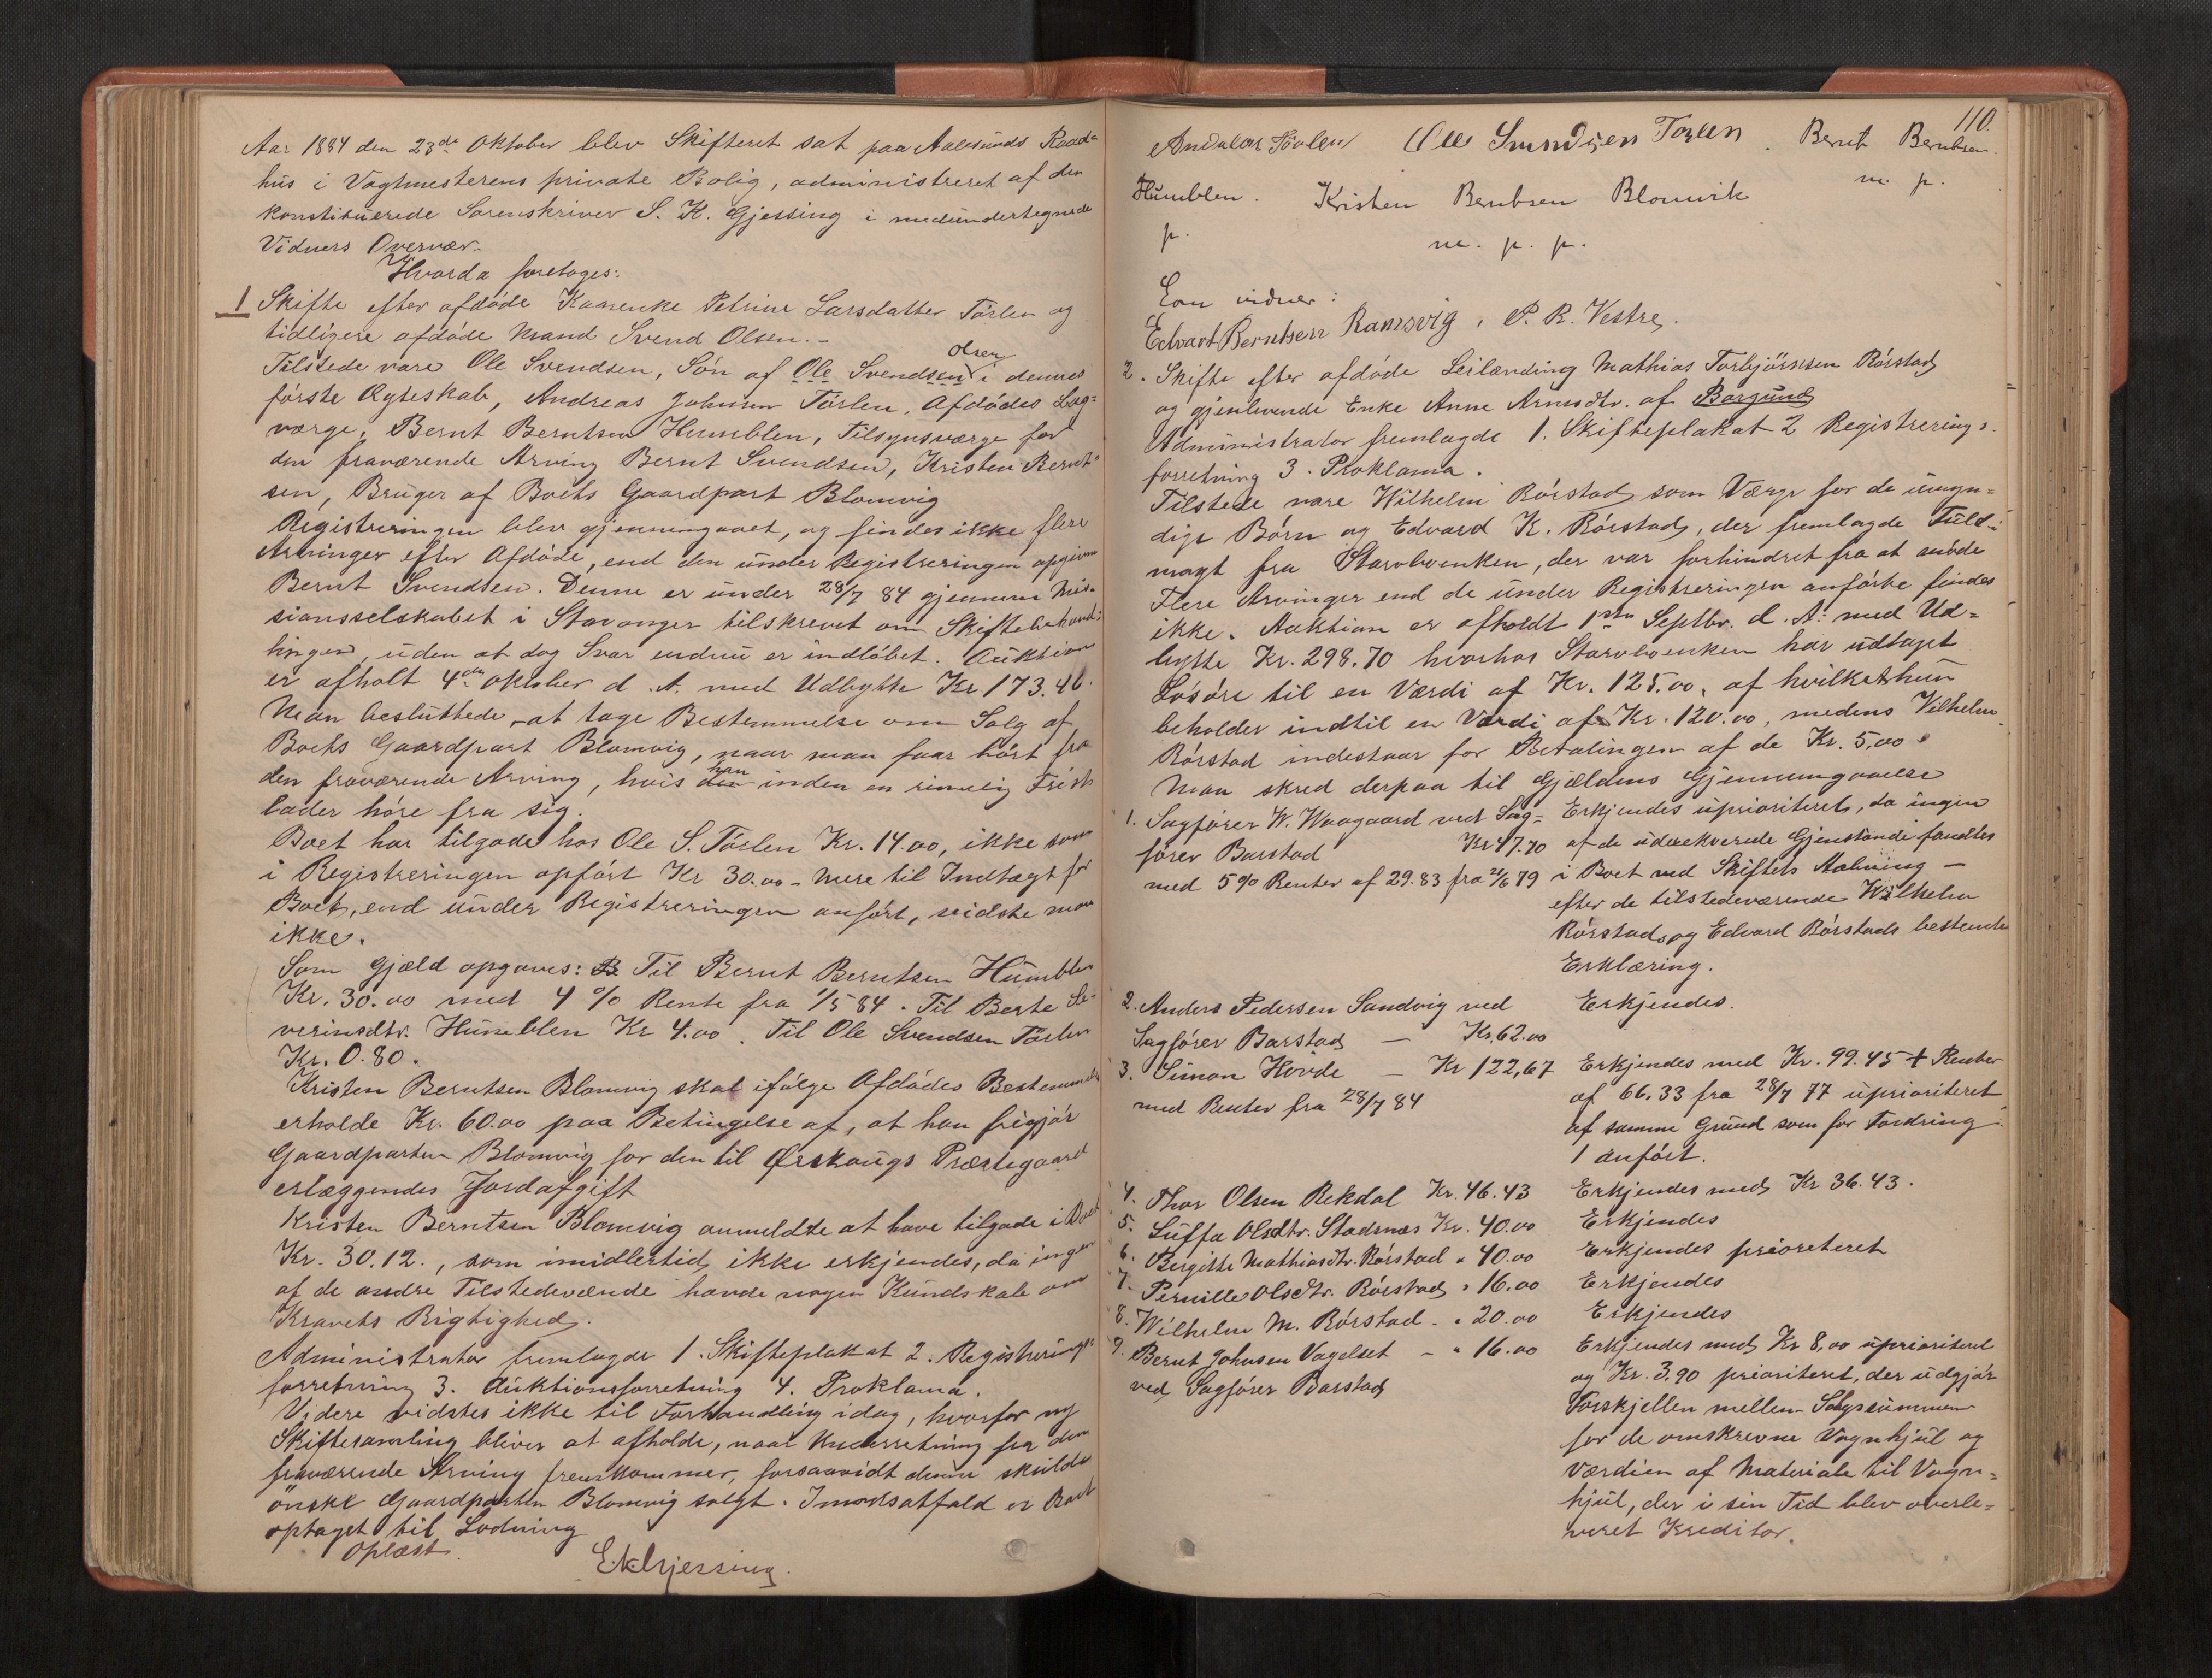 Aar 1884 den 23de Oktober blev Skifteret sat paa Aalesunds Raad=
hus i Vagtmesterens private Bolig, administreret af den
konstituerede Sorenskriver S. K. Gjessing i medundertegnede
Vidners Overvær.
Hvorda foretoges:
1 Skifte efter afdøde Karenke Petrine Larsdatter Tørlen og
tidligere afdøde Mand Svend Olsen.-
olsen
Tilstede vare Ole Svendsen, Søn af Ole Svendsen i dennes
første Ægteskab, Andreas Johnsen Tørlen, Afdødes Lag=
værge, Bernt Berntsen Humblen, Tilsynsværge for
den fraværende Arving Bernt Svendsen, Kristen Bernt=
sen, Bruger af Boets Gaardpart Blomvig
Registreringen blev gjennemgaaet, og findes ikke flere
Arvinger efter Afdøde, end den under Registreringen opgivne
Bernt Svendsen. Denne er under 28/7 84 gjennem Mis=
sionsselskabet i Stavanger tilskrevet om Skiftebehand=
lingen, uden at dog Svar endnu er indløbet. Auktion
er afholt 4de Oktober d. A. med Udbytte Kr. 173.46.
Man besluttede at tage Bestemmelse om Salg af
Boets Gaardpart Blomvig, naar man faar hørt fra
han
den fraværende Arving, hvis den inden en rimelig Frist
lader høre fra sig.
Boet har tilgode hos Ole S. Tørlen Kr. 14.00, ikke som
i Registreringen opført Kr 30.00 - Mere til Indtægt for
Boet, end under Registreringen anført, vidste man
ikke.
Som Gjæld opgaves: B Til Bernt Berntsen Humblen
Kr. 30.00 med 4 % Rente fra 1/5 84. Til Berte Se=
verinsdtr. Humblen Kr 4.00. Til Ole Svendsen Tørlen
Kr. 0.80.
Kristen Berntsen Blomvig skal ifølge Afdødes Bestemmelse
erholde Kr. 60.00 paa Betingelse af, at han frigjør
Gaardparten Blomvig for den til Ørskougs Præstegaard
erlæggendes Jordafgift
Kristen Berntsen Blomvig anmeldte at have tilgode i Boet
Kr. 30.12., som imidlertid ikke erkjendes, da ingen
af de andre Tilstedeværende havde nogen Kundskab om
Kravets Rigtighed.
Administrator fremlagde 1. Skifteplakat 2. Registrerings
forretning 3. Auktionsforretning 4. Proklama.
Videre vidstes ikke til Forhandling idag, hvorfor ny
Skiftesamling bliver at afholde, naar Underretning fra den
fraværende Arving fremkommer, forsaavidt denne skulde
ønske Gaardparten Blomvig solgt. I modsatfald er Boet
optaget til Lodning
Oplæst.
S.K.Gjessing.
110.
Andreas Tørlen Ole Svendsen Torlen. Bernt Berntsen
Humblen. Kristen Berntsen Blomvik m. p.
p. m. p. p.
Som vidner:
Edvart Berntsen Ramsvig, P. R. Vestre.
2. Skifte efter afdøde Leilænding Mathias Torbjørnsen Rørstad
og gjenlevende Enke Anne Arnesdtr. af Borgund
Administrator fremlagde 1. Skifteplakat 2 Registrerings.
forretning 3. Proklama.
Tilstede vare Wilhelm Rørstad som Værge for de umyn=
dige Børn og Edvard K. Rørstad, der fremlagde Fuld=
magt fra Starvboenken, der var forhindret fra at møde
Flere Arvinger end de under Registreringen anførte findes
ikke. Auktion er afholdt 1ste Septbr. d. A: med Ud=
bytte Kr. 298.70 hvorhos Starvboenken har udtaget
Løsøre til en Værdi af Kr. 125.00, af hvilket hun
beholder indtil en Værdi af Kr. 120.00, medens Vilhelm
Rørstad indestaar for Betalingen af de Kr. 5,00.
Man skred derpaa til Gjældens Gjennemgaaelse
1. Sagfører W. Waagaard ved Sag= Erkjendes uprioriteret, da ingen
fører Barstad Kr 47.70 af de udexekverede Gjenstande fandtes
med 5% Renter af 29.83 fra 21/6 79 i Boet ved Skiftets Aabning -
efter de tilstedeværende Wilhelm
Rørstads og Edvard Rørstads bestemte
Erklæring.
2. Anders Pedersen Sandvig ved Erkjendes.
Sagfører Barstad - Kr. 62.00
3. Simon Hovde - Kr 122,67 Erkjendes med Kr. 99.45 + Renter
med Renter fra 28/7 84 af 66.33 fra 28/7 77 uprioriteret
af samme Grund som for Fordring
1 anført.
4. Thor Olsen Rekdal Kr. 46.43 Erkjendes med Kr 36.43.
5. Luffa Olsdtr. Stadsnæs Kr. 40.00 Erkjendes
6. Birgitte Mathiasdtr. Rørstad " 40.00 Erkjendes prioriteret
7. Pernille Olsdtr. Rørstad " 16.00 Erkjendes
8. Wilhelm M. Rørstad - " 20.00 Erkjendes
9. Bernt Johnsen Vegelset - " 16.00 Erkjendes med Kr 8,00 uprioriteret
ved Sagfører Barstad og Kr. 3.90 prioriteret, der udgjør
Forskjellen mellem Salgssummen
for de omskrevne Vognhjul og
Værdien af Materiale til Vogn=
hjul, der i sin Tid blev overle=
veret Kreditor.